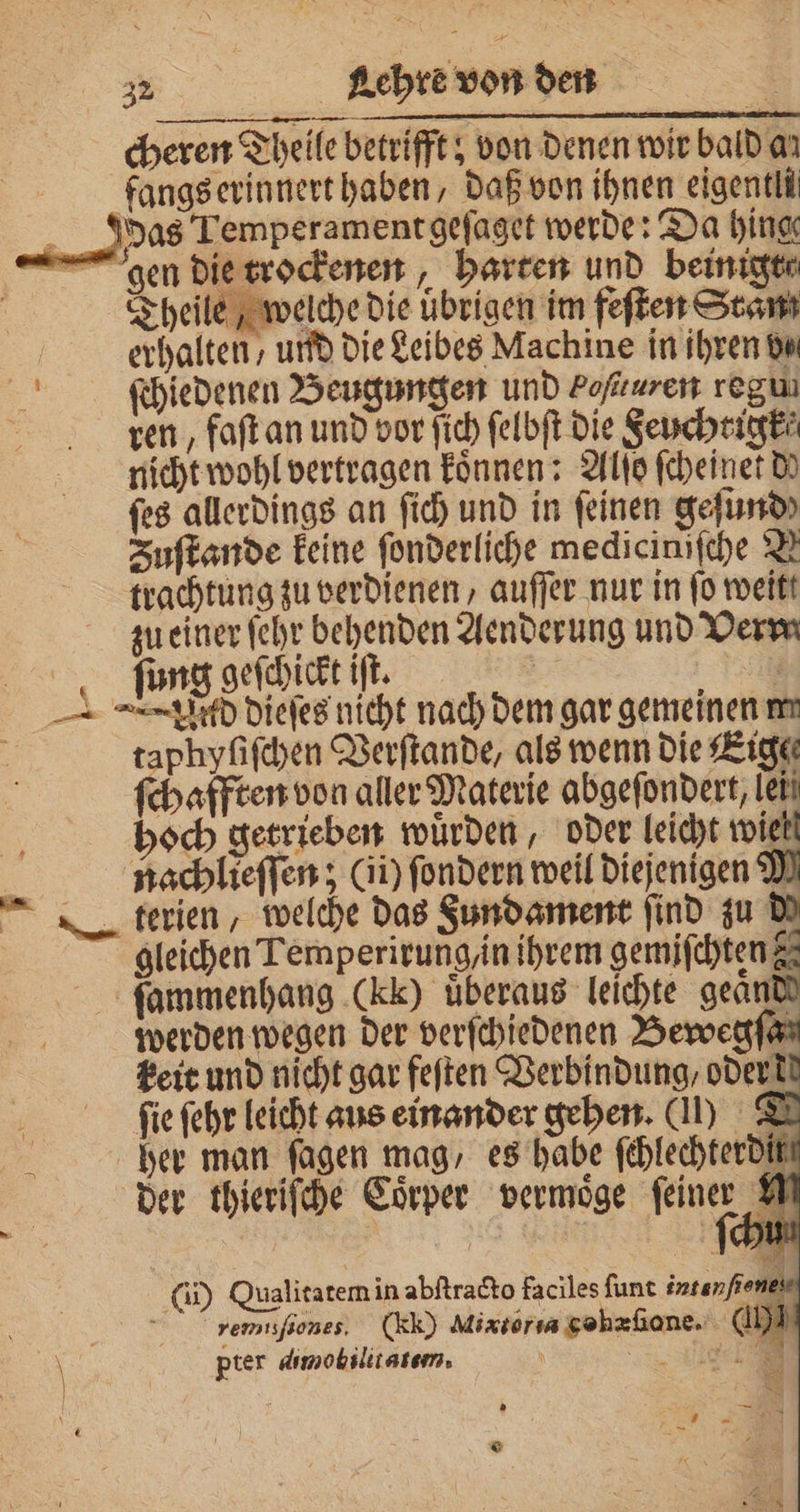 32 Lehre von den
cheren Theile betrifft; von denen wir bald an
fangs erinnert haben, daß von ihnen eigentli
das Temperament geſaget werde: Da hinge
gen die trockenen, harten und beinigte
Theile, welche die uͤbrigen im feſten Stan
erhalten, und die Leibes Machine in ihren ve
ſchiedenen Beugungen und Poſituren regu
ren, faſt an und vor ſich ſelbſt die Feuchtigke
nicht wohl vertragen koͤnnen: Alſo ſcheinet
ſes allerdings an ſich und in ſeinen geſund
Zuſtande keine ſonderliche mediciniſche
trachtung zu verdienen, auſſer nur in ſo weit
zu einer ſehr behenden Aenderung und Verm
ſung geſchickt iſt.
Und dieſes nicht nach dem gar gemeinen m
taphyſiſchen Verſtande, als wenn die Eige
ſchafften von aller Materie abgeſondert, lei
hoch getrieben wuͤrden, oder leicht wie
nachlieſſen; (ii) ſondern weil diejenigen M
terien, welche das Fundament ſind zu d
gleichen Temperirung, in ihrem gemiſchten
ſammenhang (kk) uͤberaus leichte geaͤnd
werden wegen der verſchiedenen Bewegſa
keit und nicht gar feſten Verbindung, oder
ſie ſehr leicht aus einander gehen. (ll) D
her man ſagen mag, es habe ſchlechterdi
der thieriſche Coͤrper vermoͤge ſeiner M
ſchu
(ii) Qualitatem in abſtracto faciles ſunt intenſiones
remiſſiones. (kk) Mixtoria cohæſione. (ll)
pter dimobilitatem.